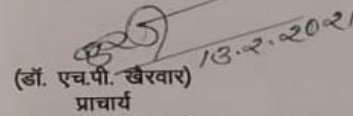 13.2.2021
(डॉ. एच.पी. खैरवार)
प्राचार्य